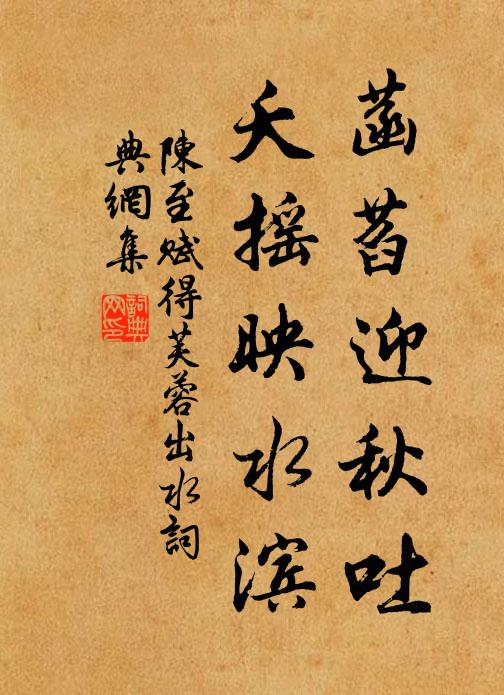 菡萏迎秋吐
夭摇映水滨
陳至賦得芙蓉出水詞
典網集
詞典
网印